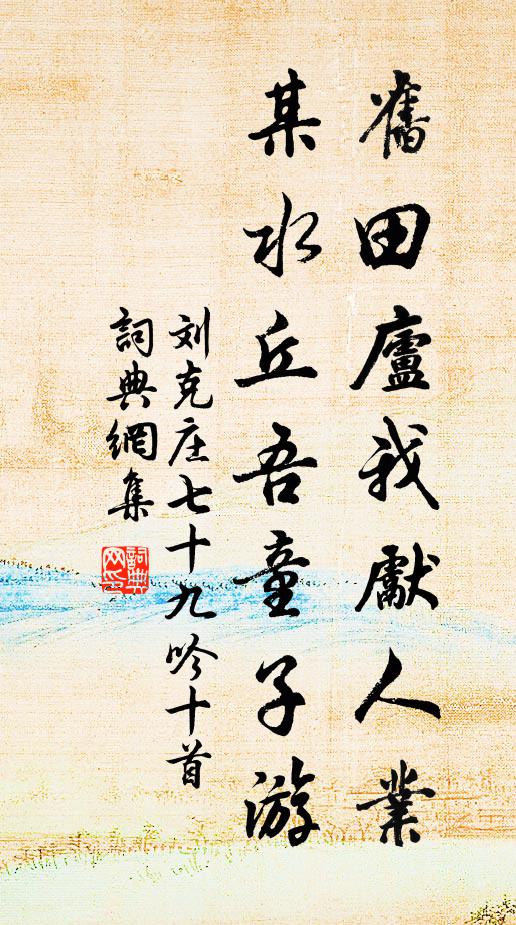 舊田廬我獻人業
某水丘吾童子游
刘克庄七十九吟十首
詞典網集
詞典网印